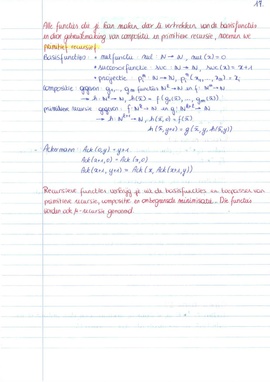 19.
Alle functies die je kan maken door te vertrekken van de basisfuncties
en door gebruikmaking van compositie en primitieve recursie, noemen we
primitief recursief.
Basisfuncties: • nulfunctie : nul : ℕ → ℕ, nul(x) = 0
• successorfunctie : suc : ℕ → ℕ, suc(x) = x+1
• projectie : pᵢⁿ : ℕⁿ → ℕ, pᵢⁿ(x₁, ..., xₙ) = xᵢ
compositie : gegeven g₁, ..., gₘ functies ℕᵏ → ℕ en f : ℕᵐ → ℕ
→ h : ℕᵏ → ℕ, h(x̄) = f(g₁(x̄), ..., gₘ(x̄))
primitieve recursie : gegeven f : ℕᵏ → ℕ en g : ℕᵏ⁺² → ℕ
→ h : ℕᵏ⁺¹ → ℕ, h(x̄, 0) = f(x̄)
h(x̄, y+1) = g(x̄, y, h(x̄, y))
Ackermann : Ack(0, y) = y+1
Ack(x+1, 0) = Ack(x, 1)
Ack(x+1, y+1) = Ack(x, Ack(x+1, y))
Recursieve functies verkrijg je uit de basisfuncties en toepassen van
primitieve recursie, compositie en onbegrensde minimalisatie. Die functies
worden ook μ-recursief genoemd.